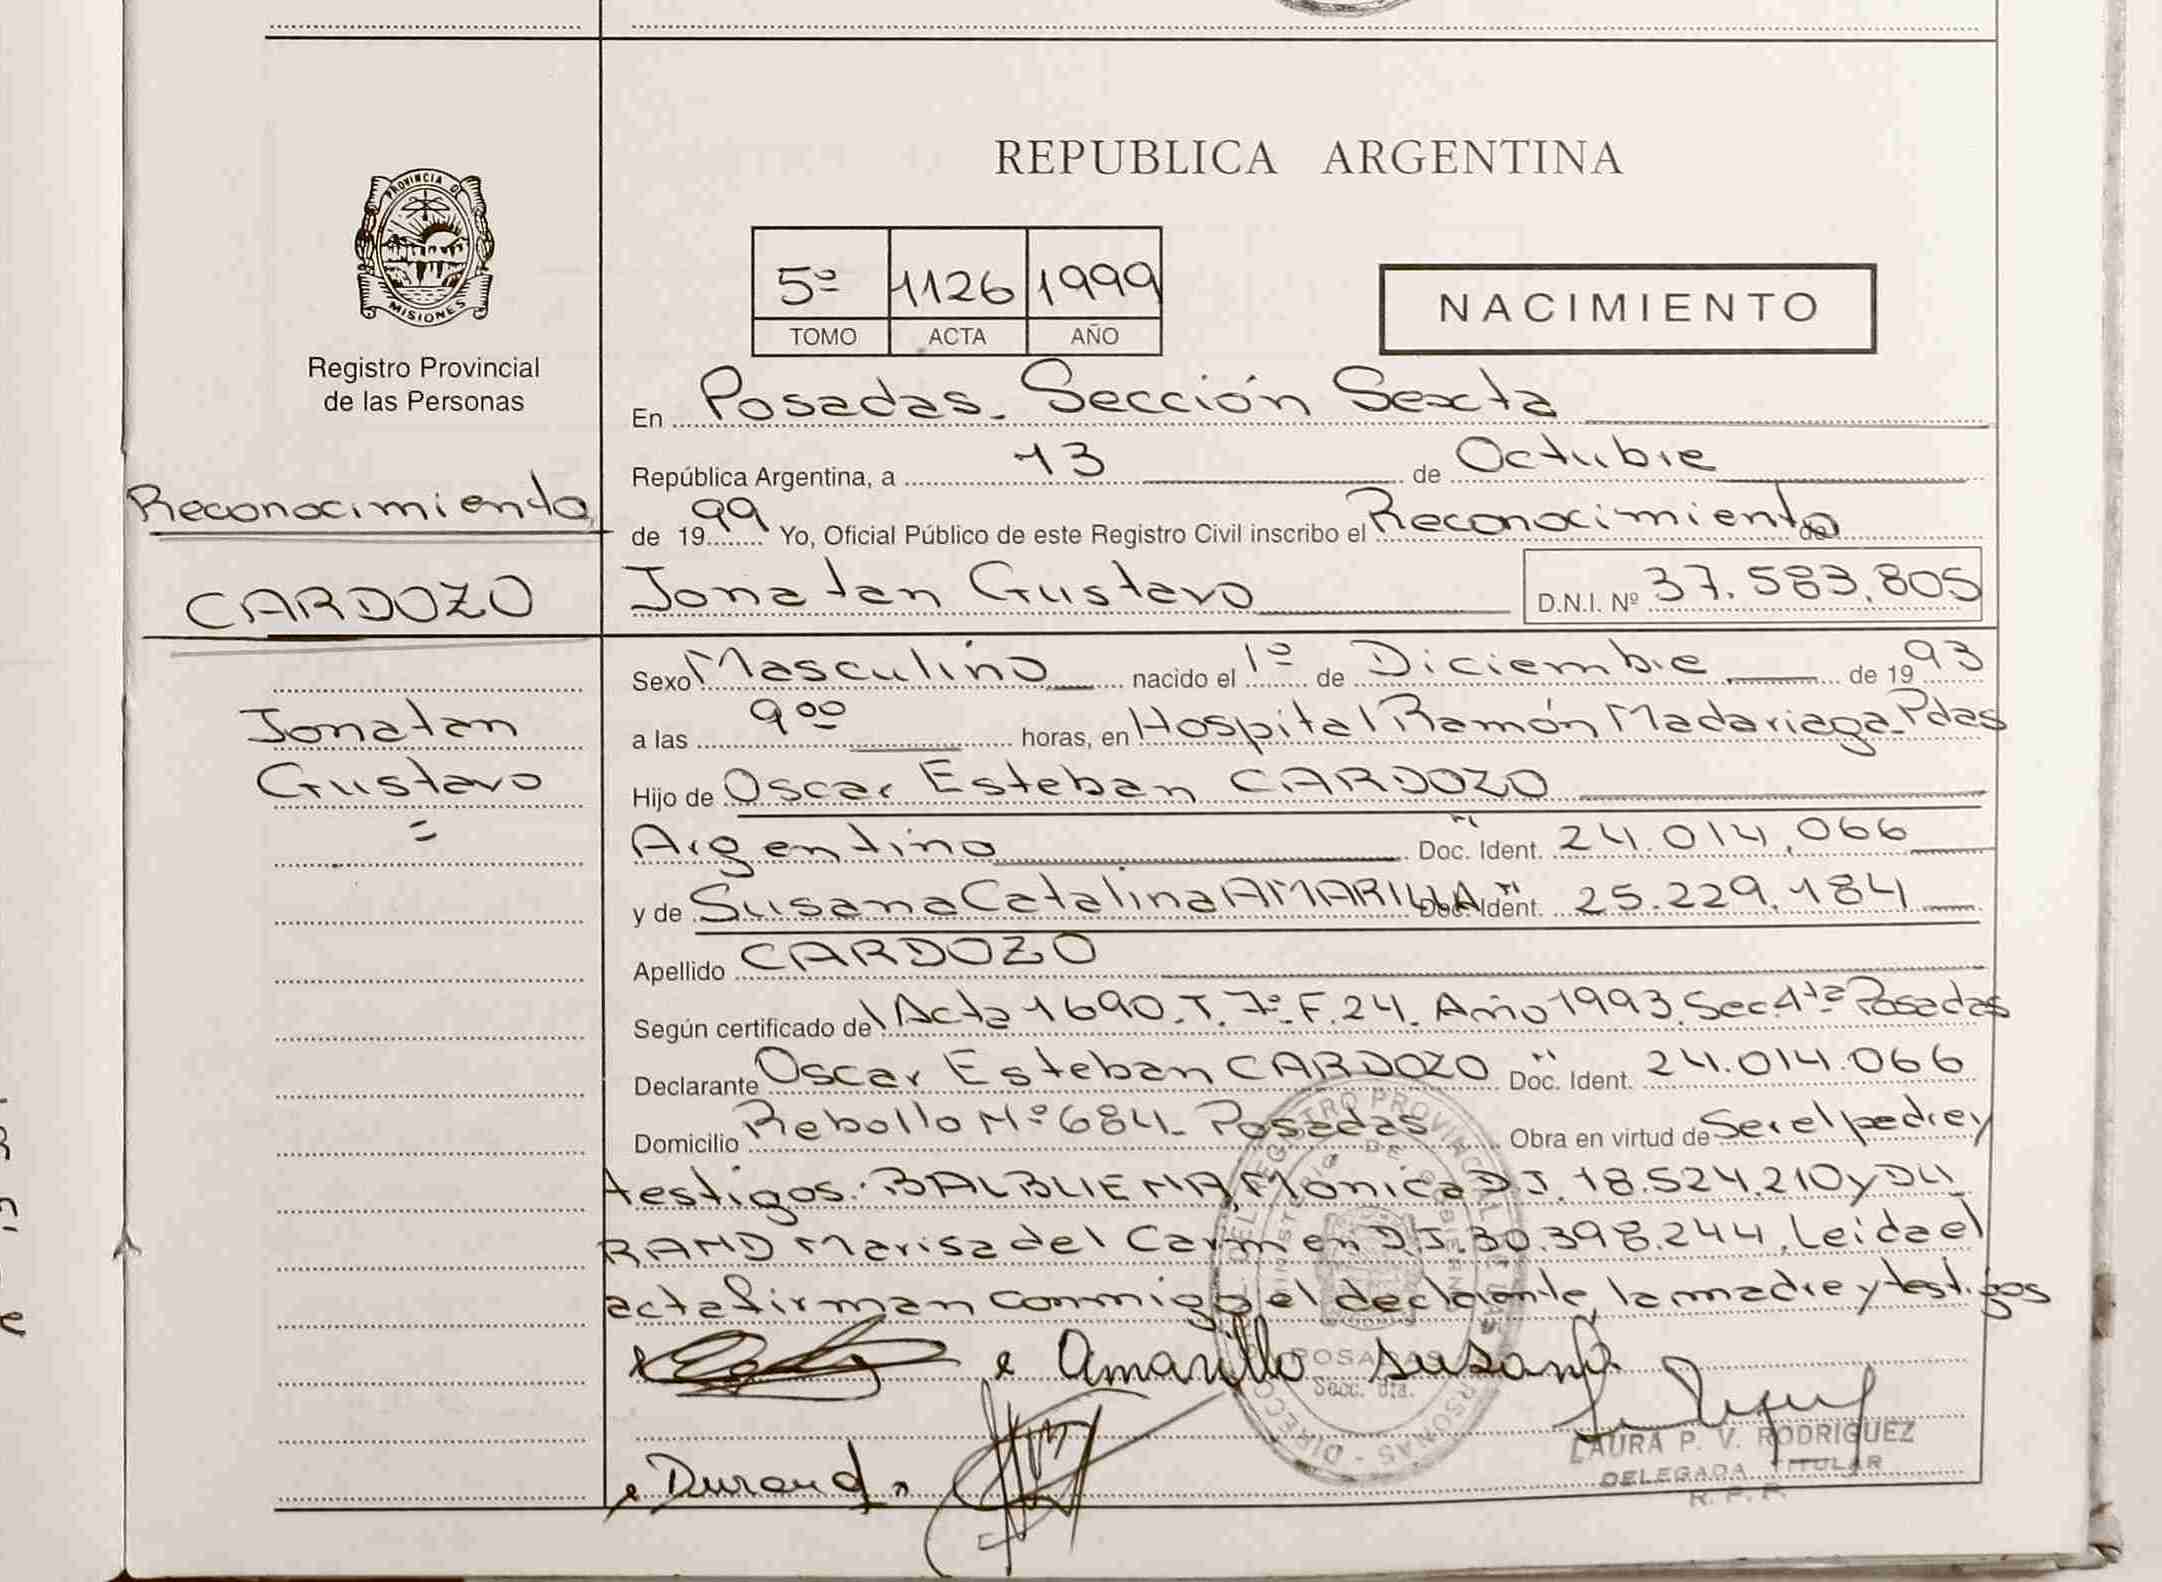 REPUBLICA ARGENTINA
PROVINCIA DE
MISIONES
Registro Provincial
de las Personas
5º 1126 1999
TOMO ACTA AÑO
NACIMIENTO
En Posadas. Sección Sexta
República Argentina, a 13 de Octubre
Reconocimiento
de 1999 Yo, Oficial Público de este Registro Civil inscribo el Reconocimiento de
CARDOZO
Jonatan Gustavo D.N.I. Nº 37.583.805
Sexo Masculino nacido el 1º de Diciembre de 1993
Jonatan
a las 9 00 horas, en Hospital Ramón Madariaga-Pdas
Gustavo
Hijo de Oscar Esteban CARDOZO
=
Argentino Doc. Ident. 24.014.066
y de Susana Catalina AMARILLA Doc. Ident. 25.229.184
Apellido CARDOZO
Según certificado del Acta 1690. T. 7º. F. 24. Año 1993. Sec. 4ta Posadas
Declarante Oscar Esteban CARDOZO Doc. Ident. 24.014.066
Domicilio Rebollo Nº 684- Posadas Obra en virtud de Ser el padre y
testigos: BALBUENA, Mónica D.I. 18.524.210 y DU
RAND Marisa del Carmen D.I. 30.398.244. Leida el
acta firman conmigo el declarante, la madre y testigos
Amarillo Susana
POSADAS
Secc. 6ta.
Durand
LAURA P. V. RODRIGUEZ
DELEGADA TITULAR
R. P. P.